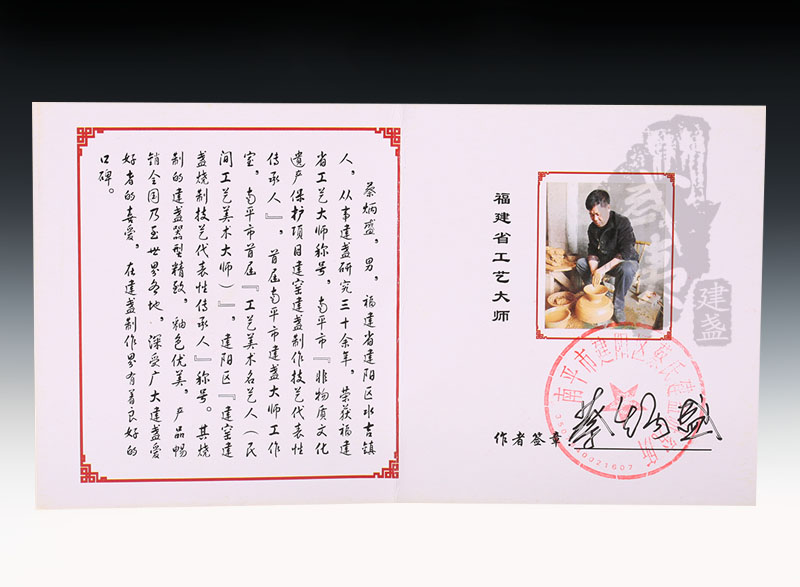 蔡炳盛，男，福建省建阳区水吉镇
人，从事建盏研究三十余年，荣获福建
省工艺大师称号，南平市『非物质文化
遗产保护项目建窑建盏制作技艺代表性
传承人』，首届南平市建盏大师工作
室，南平市首届『工艺美术名艺人（民
间工艺美术大师）』，建阳区『建窑建
盏烧制技艺代表性传承人』称号。其烧
制的建盏器型精致，釉色优美，产品畅
销全国乃至世界各地，深受广大建盏爱
好者的喜爱，在建盏制作界有着良好的
口碑。
福建省工艺大师
建盏
南平市建阳区蔡氏建盏
作者签章：蔡炳盛